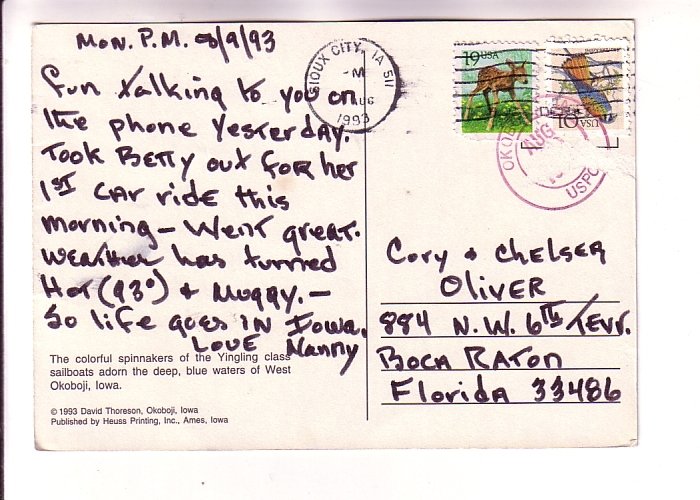 Mon. P.M. 8/9/93
Fun talking to you on
the phone yesterday.
Took Betty out for her
1ST car ride this
morning — Went great.
Weather has turned
Hot (93°) & Muggy. —
So life goes in Iowa.
Love Nanny
The colorful spinnakers of the Yingling class
sailboats adorn the deep, blue waters of West
Okoboji, Iowa.
© 1993 David Thoreson, Okoboji, Iowa
Published by Heuss Printing, Inc., Ames, Iowa
SIOUX CITY, IA 511
AUG
1993
19 USA
10 USA
AUG
USPO
Cory & Chelsea
Oliver
884 N.W. 6th Terr.
Boca Raton
Florida 33486